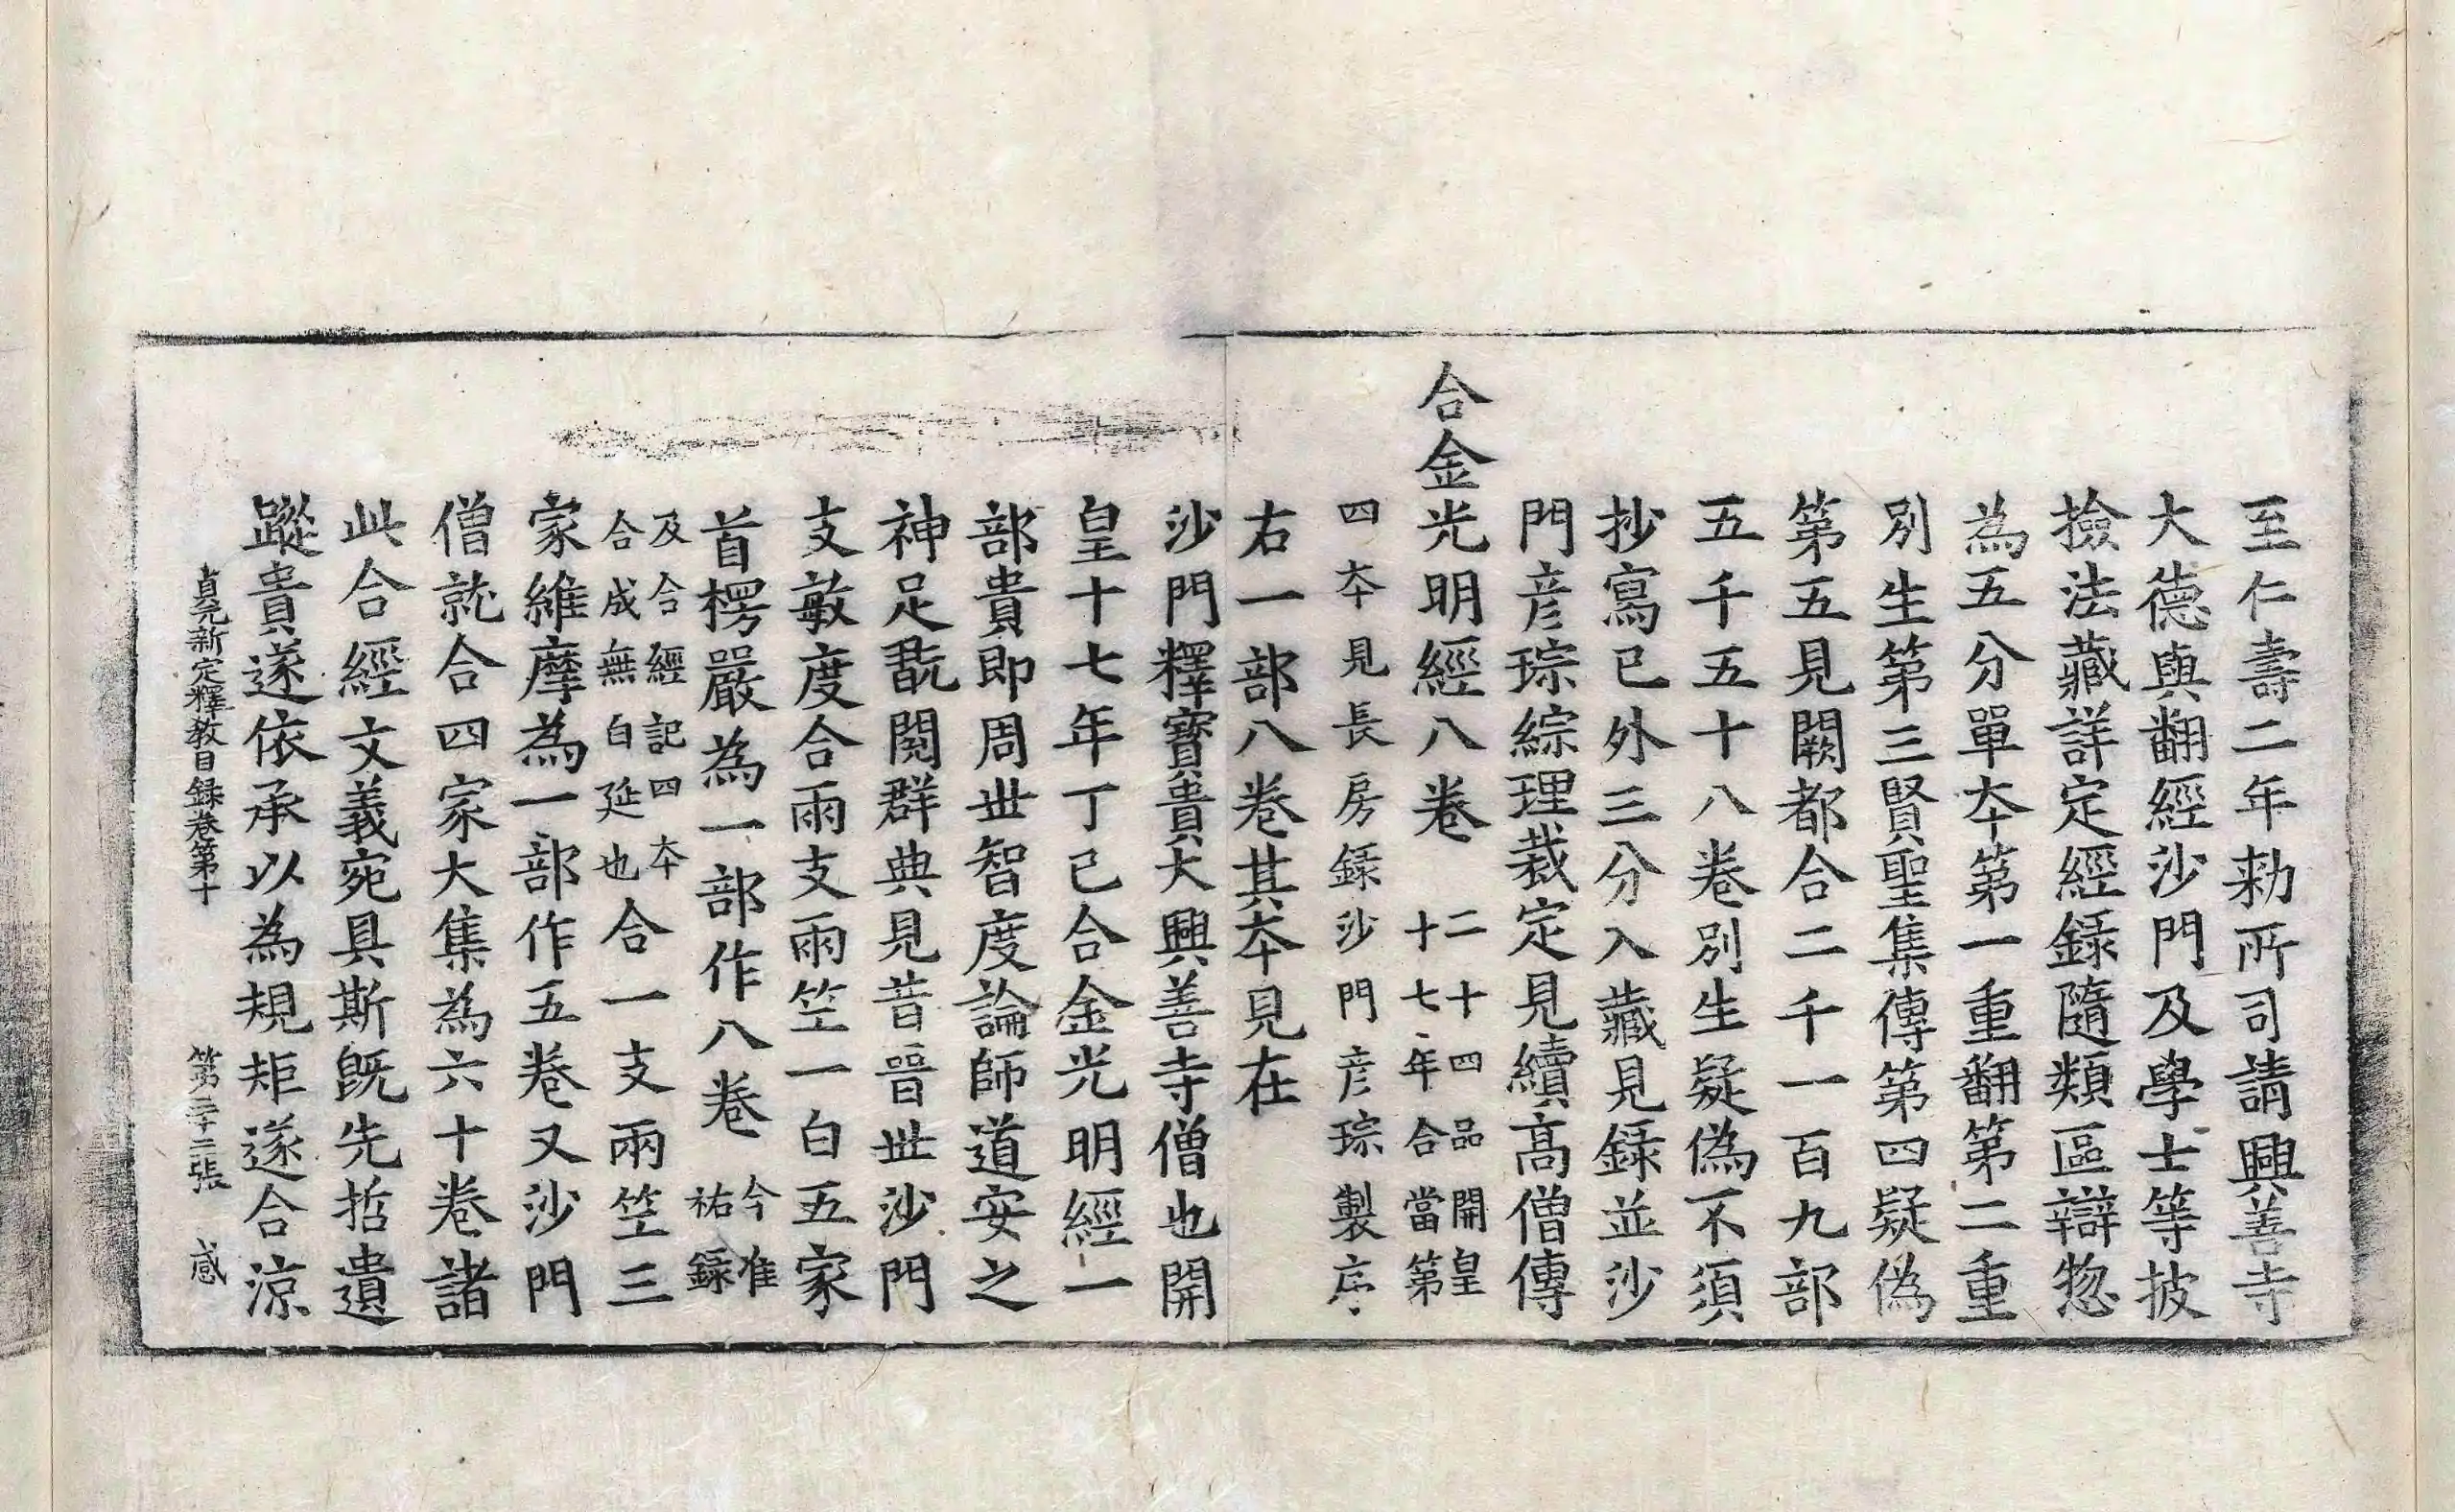 至仁壽二年勑所司請興善寺
大德與翻經沙門及學士等披
撿法藏詳定經録隨類區辯惣
為五分單夲第一重翻第二重
別生第三賢聖集傳第四疑偽
第五見闕都合二千一百九部
五千五十八卷別生疑偽不須
抄寫已外三分入藏見録並沙
門彦琮綜理裁定見續髙僧傳
合金光明經八卷二十四品開皇
十七年合當第
四夲見長房録沙門彦琮製序
右一部八卷其夲見在
沙門釋寶貴大興善寺僧也開
皇十七年丁已合金光明經一
部貴即周丗智度論師道安之
神足翫閱群典見昔晉丗沙門
支敏度合兩支兩竺一白五家
首楞嚴為一部作八卷今准
祐録
及合經記四夲
合成無白延也合一支兩竺三
家維摩為一部作五卷又沙門
僧就合四家大集為六十卷諸
此合經文義宛具斯旣先哲遺
蹤貴遂依承以為規矩遂合涼
貞元新定釋教目録卷第十 第二十二張 感